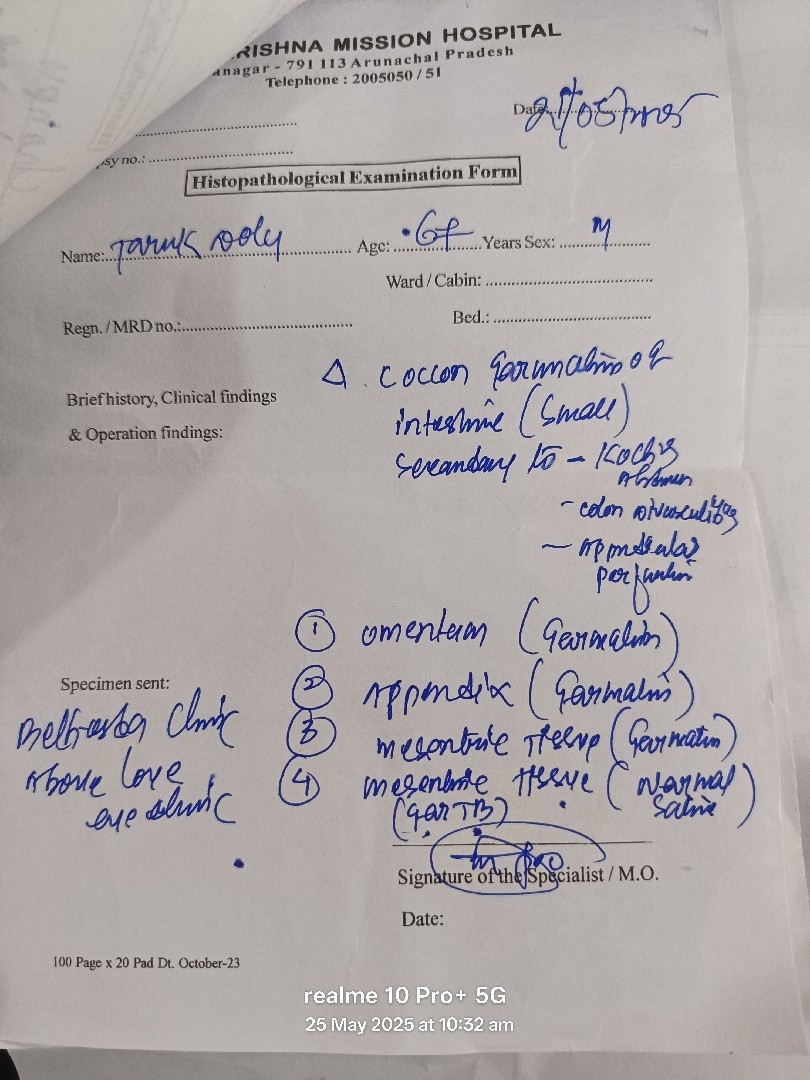 RISHNA MISSION HOSPITAL
anagar - 791 113 Arunachal Pradesh
Telephone : 2005050 / 51
Date
sy no.:
Histopathological Examination Form
Name: Taruk Age: Years Sex: M
Ward / Cabin:
Regn. / MRD no.:
Bed.:
Brief history, Clinical findings
& Operation findings:
Δ. Coccon formation of
intestine (Small)
Secondary to - Koch's
Abdomen
- colon
- Appendicular
perforation
① omentum (Formalin)
Specimen sent:
② Appendix (Formalin)
③ mesentric Tissue (Formalin)
④ mesentric Tissue (Normal Saline)
(For TB)
Clinic
Above Love
eye clinic
Signature of the Specialist / M.O.
Date:
100 Page x 20 Pad Dt. October-23
realme 10 Pro+ 5G
25 May 2025 at 10:32 am